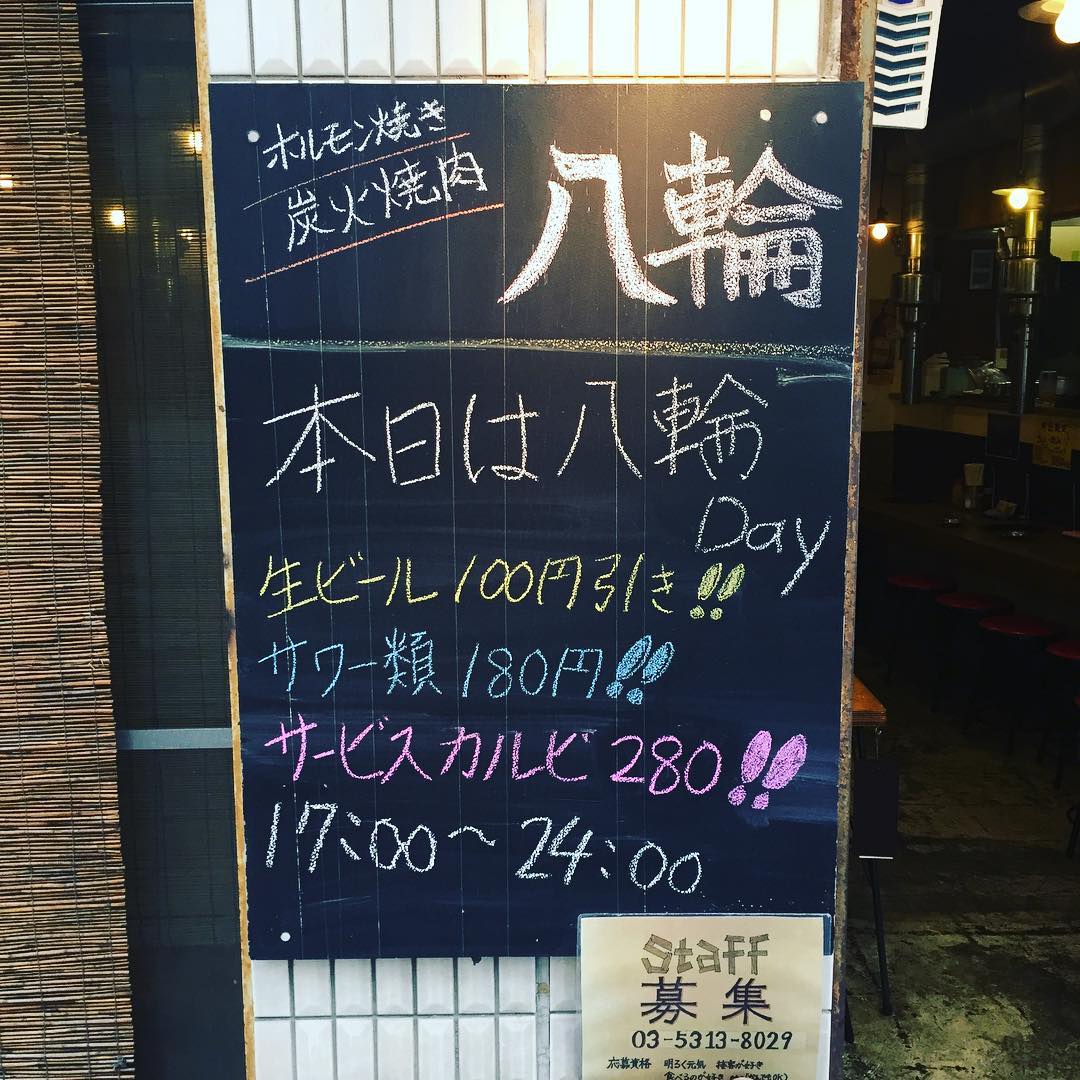 ホルモン焼き
炭火焼肉
八輪
本日は八輪
Day
生ビール100円引き!!
サワー類 180円!!
サービスカルビ 280!!
17:00～24:00
Staff
募集
03-5313-8029
応募資格 明るく元気 接客が好き
食べるのが好き